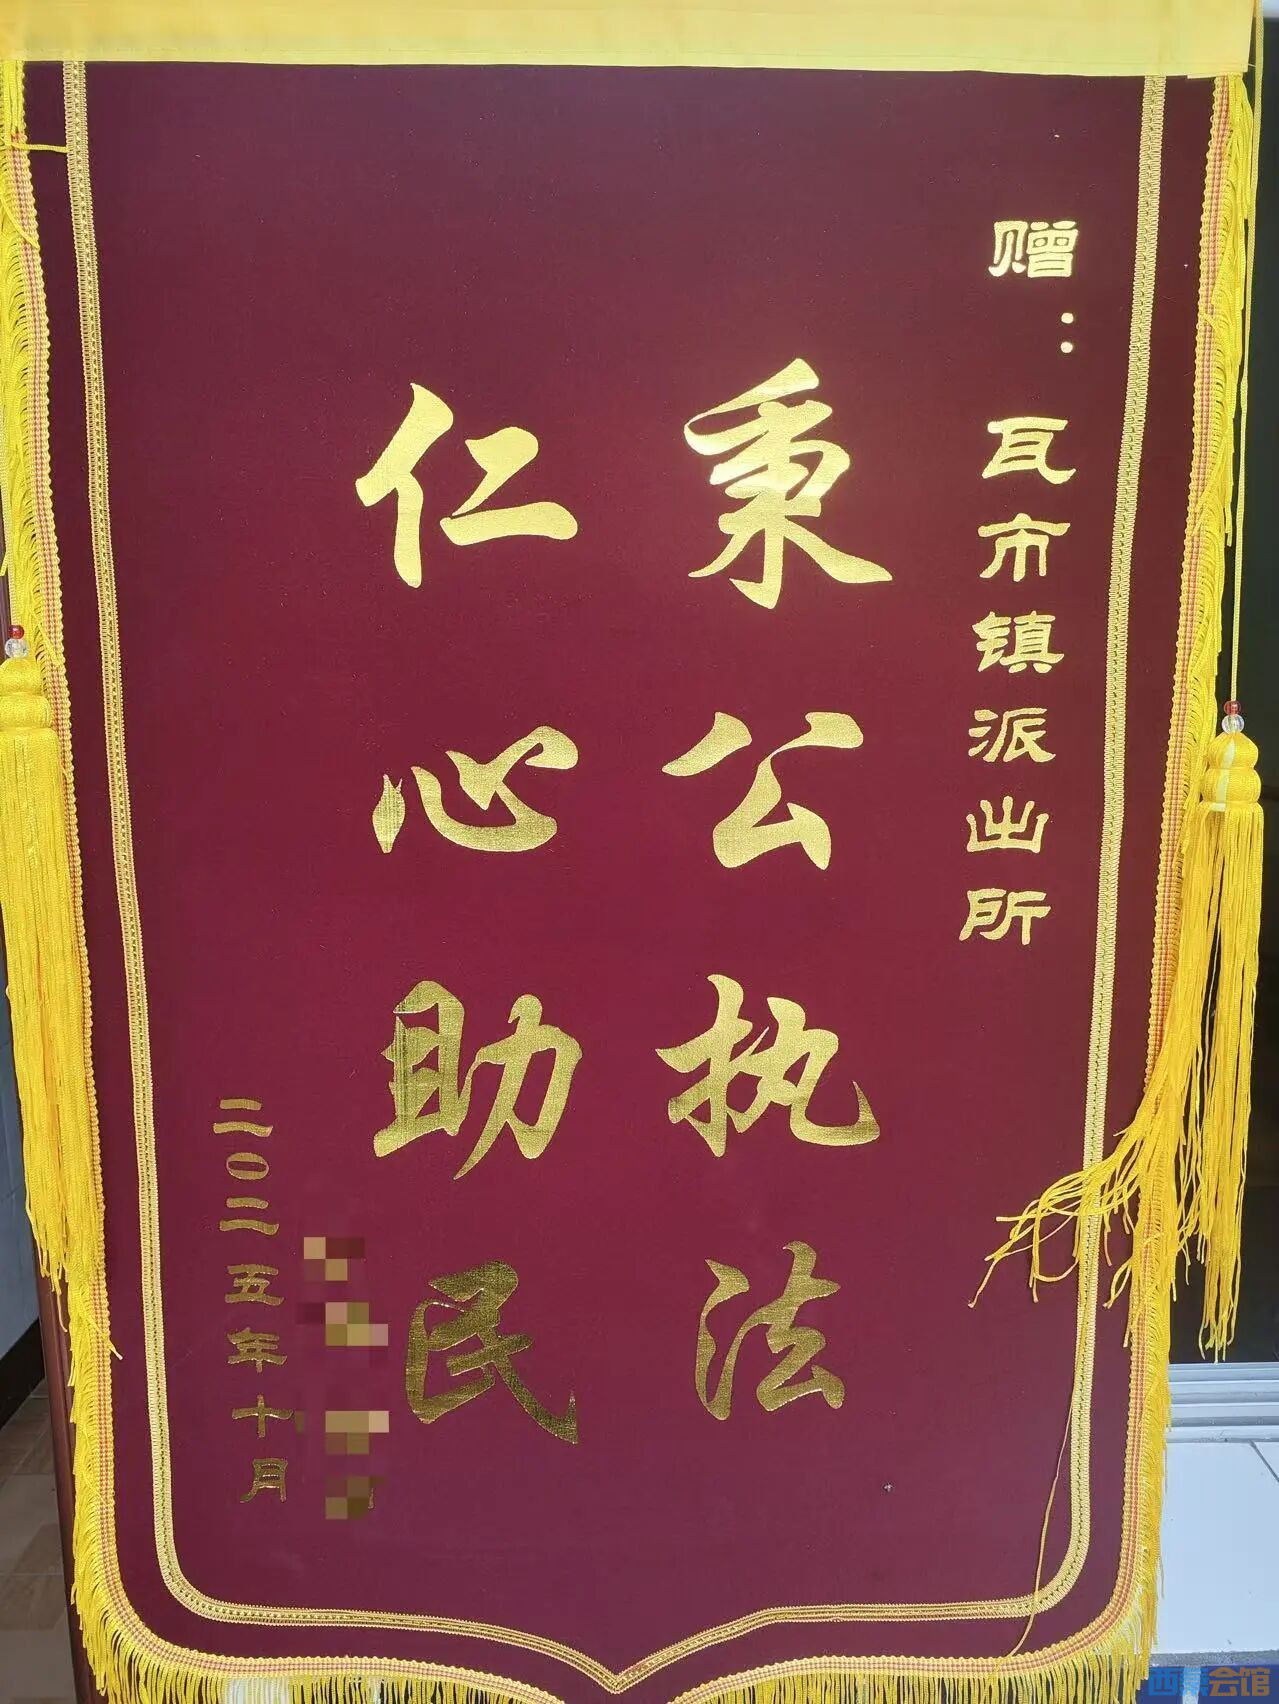 赠：瓦市镇派出所
秉公执法
仁心助民
二〇二五年十月
西秦会馆